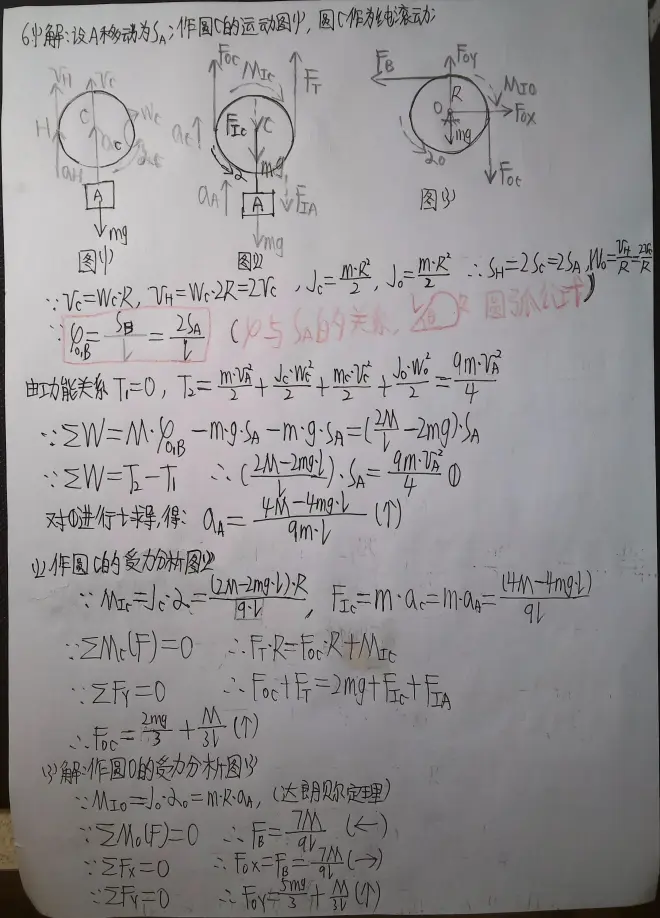 6(1)解:设A移动为S_A;作圆C的运动图(1),圆C作为纯滚动;
V_H V_C W_C H C a_C α_C a_H A mg 图(1)
F_OC M_IC F_T F_IC C a_C α mg a_A A F_IA mg 图(2)
F_B F_OY M_IO R O F_OX mg α_O F_OC 图(3)
∵V_C=W_C·R, V_H=W_C·2R=2V_C, J_C=m·R²/2, J_O=m·R²/2 ∴S_H=2S_C=2S_A, W_O=V_H/R=2V_C/R
∵φ_O1B=S_H/l=2S_A/l (φ与S_A的夕关系, R 圆弧公式)
由功能关系T₁=0, T₂=m·V_A²/2+J_C·W_C²/2+m_C·V_C²/2+J_O·W_O²/2=9m·V_A²/4
∵ΣW=M·φ_O1B-m·g·S_A-m·g·S_A=(2M/l-2mg)·S_A
∵ΣW=T₂-T₁ ∴((2M-2mg·l)/l)·S_A=9m·V_A²/4 ①
对①进行t求导,得: a_A=(4M-4mg·l)/(9m·l) (↑)
(2)作圆C的受力分析图(2)
∵M_IC=J_C·α_C=(2M-2mg·l)·R/(9·l), F_IC=m·a_C=m·a_A=(4M-4mg·l)/9l
∵ΣM_C(F)=0 ∴F_T·R=F_OC·R+M_IC
∵ΣF_Y=0 ∴F_OC+F_T=2mg+F_IC+F_IA
∴F_OC=2mg/3+M/3l(↑)
(3)解:作圆O的受力分析图(3)
∵M_IO=J_O·α_O=m·R·a_A,(达朗贝尔定理)
∵ΣM_O(F)=0 ∴F_B=7M/9l (←)
∵ΣF_X=0 ∴F_OX=F_B=7M/9l(→)
∵ΣF_Y=0 ∴F_OY=5mg/3+M/3l(↑)